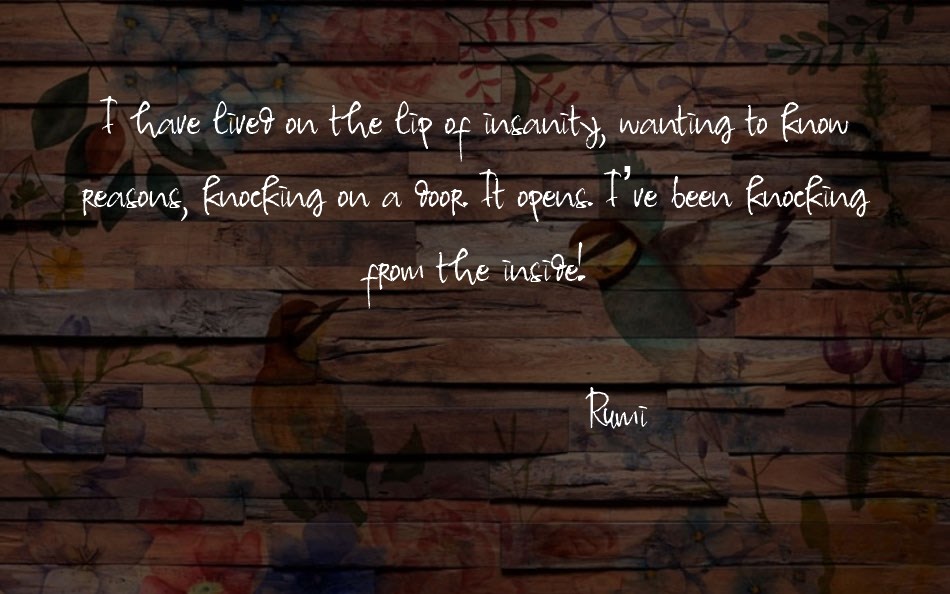 I have lived on the lip of insanity, wanting to know
reasons, knocking on a door. It opens. I've been knocking
from the inside!
Rumi